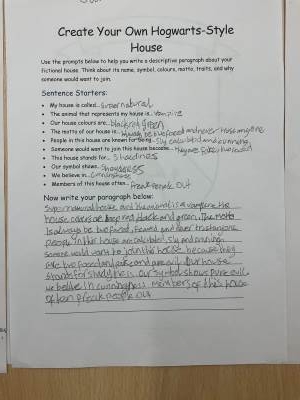 Create Your Own Hogwarts-Style
House
Use the prompts below to help you write a descriptive paragraph about your
fictional house. Think about its name, symbol, colours, motto, traits, and why
someone would want to join.
Sentence Starters:
My house is called... Supernatural
The animal that represents my house is... Vampire
Our house colours are... black red Green
The motto of our house is... always be two faced and never trust anyone
People in this house are known for being... Sly calculated and cunning
Someone would want to join this house because... they are
This house stands for... Shadiness
Our symbol shows...
We believe in... cunningness
Members of this house often... freak People Out
Now write your paragraph below:
Supernatural house and the animal is a vampire the
house colors are red black and green. The motto
is always be two faced, feared and never trust anyone
people in this house are calculated sly and cunning
someone would want to join this house because they
are two faced and and are evil. Our house
stands for shadyness. our symbol shows pure evil.
we belive in cunningness. members of this house
often freak people out